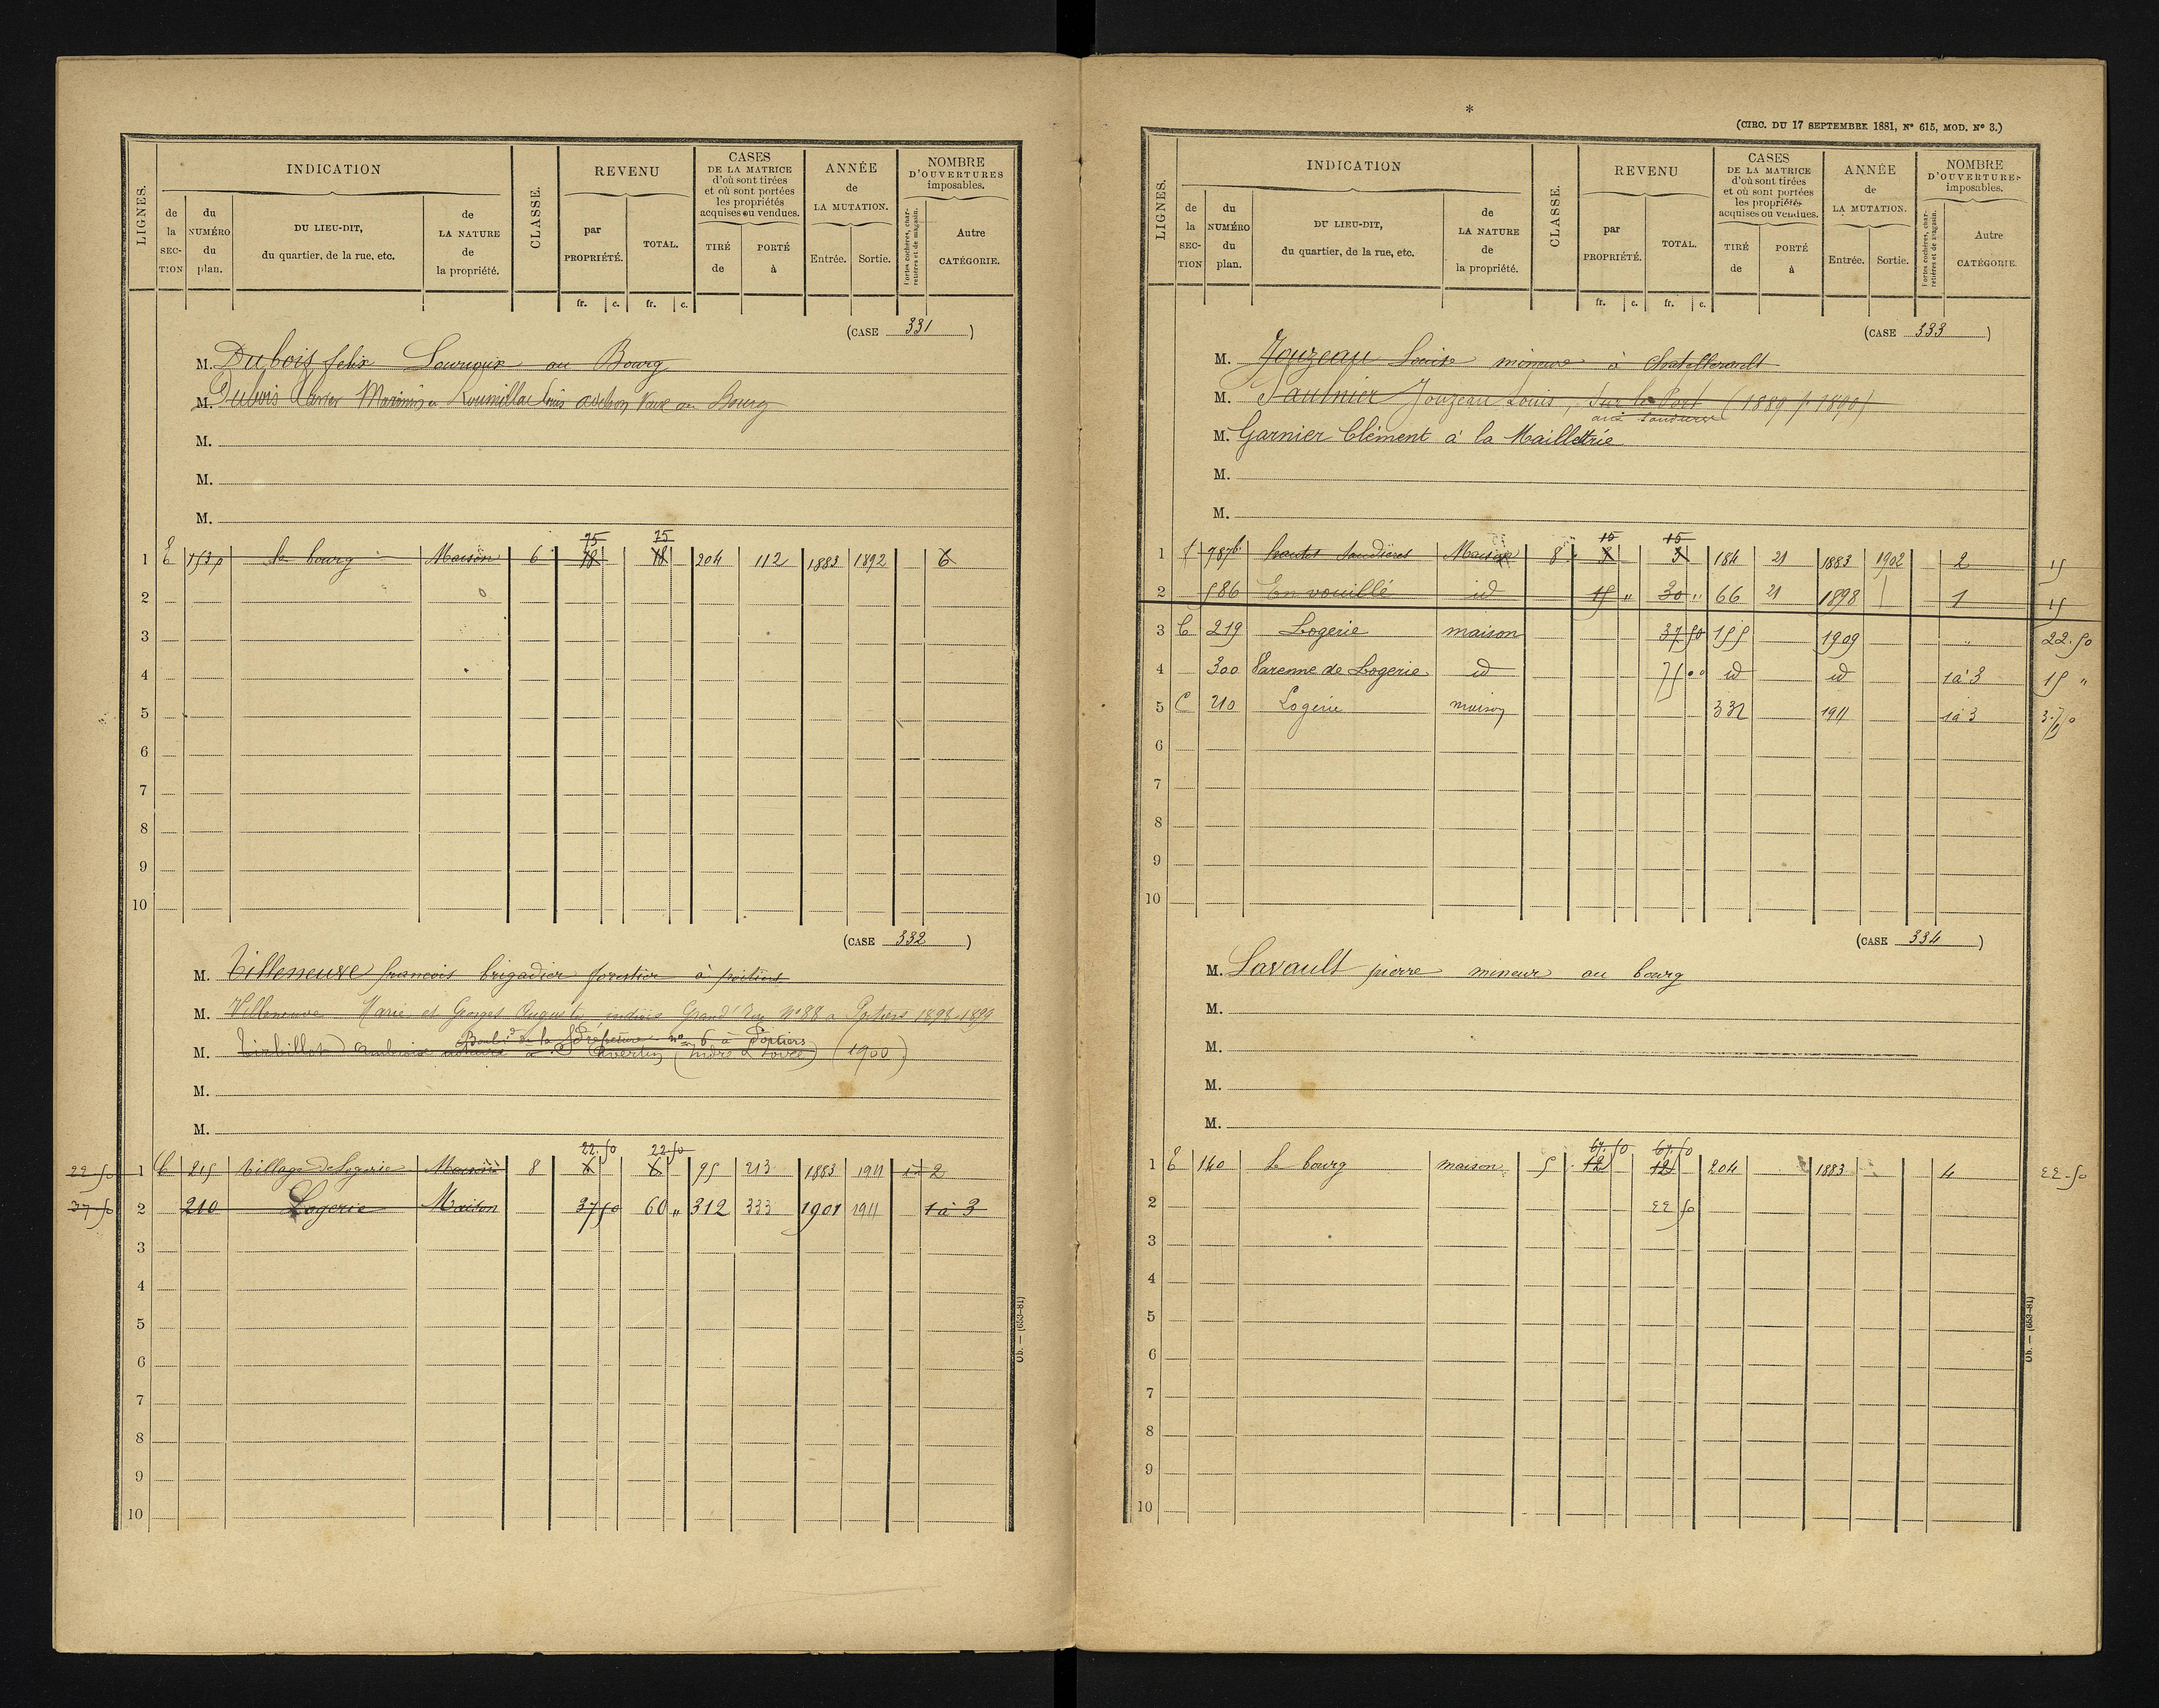 LIGNES.
INDICATION
de la SECTION
du NUMÉRO du plan.
DU LIEU-DIT, du quartier, de la rue, etc.
de LA NATURE de la propriété.
CLASSE.
REVENU
par PROPRIÉTÉ.
TOTAL.
fr. c. fr. c.
CASES DE LA MATRICE d'où sont tirées et où sont portées les propriétés acquises ou vendues.
TIRÉ de
PORTÉ à
ANNÉE de LA MUTATION.
Entrée. Sortie.
NOMBRE D'OUVERTURES imposables.
Portes cochères, charretières et de magasin.
Autre CATÉGORIE.
(CASE 331)
M. Dubois felix au Bourg
M. Dubois au Bourg
M.
M.
M.
75 75
1 E 153p le bourg Maison 6 18 18 204 112 1883 1892 6
2
3
4
5
6
7
8
9
10
(CASE 332)
M. Villeneuve francois brigadier forestier à poitiers
M. Villeneuve Marie et Georges Auguste, Grand'Rue No 88 a Poitiers 1898-1899
Boul.d de la Préfecture no 6 à Poitiers
M. Avertin (Indre & Loire) (1900)
M.
M.
22.50 22.50
22.50 1 C 215 Village de Logerie Maison 8 6 6 95 213 1883 1911 2
37.50 2 210 Logerie Maison 37 50 60 " 312 333 1901 1911 1 à 3
3
4
5
6
7
8
9
10
Ob. — (653-81)
*
(CIRC. DU 17 SEPTEMBRE 1881, N° 615, MOD. N° 3.)
LIGNES.
INDICATION
de la SECTION
du NUMÉRO du plan.
DU LIEU-DIT, du quartier, de la rue, etc.
de LA NATURE de la propriété.
CLASSE.
REVENU
par PROPRIÉTÉ.
TOTAL.
fr. c. fr. c.
CASES DE LA MATRICE d'où sont tirées et où sont portées les propriétés acquises ou vendues.
TIRÉ de
PORTÉ à
ANNÉE de LA MUTATION.
Entrée. Sortie.
NOMBRE D'OUVERTURES imposables.
Portes cochères, charretières et de magasin.
Autre CATÉGORIE.
(CASE 333)
M. Jouzeau Louise mineure à Chatellerault
M. Saulnier Jouzeau Louis, Sur le Port (1889 p. 1890)
M. Garnier Clément à la Mailletrie
M.
M.
15 15
1 787b hautes Maison 8 3 3 184 21 1883 1902 2 15
2 586 En vouillé id 15 " 30 " 66 21 1898 1 15
3 C 219 Logerie maison 37 50 155 1909 " 22.50
4 300 Varenne de Logerie id 75 00 id id 1 à 3 15 "
5 C 210 Logerie maison 332 1911 1 à 3
6
7
8
9
10
(CASE 334)
M. Lavault pierre mineur au bourg
M.
M.
M.
M.
1 E 140 le bourg maison 5 12 12 204 1883 4 22.50
2 22 50
3
4
5
6
7
8
9
10
Ob. — (653-81)